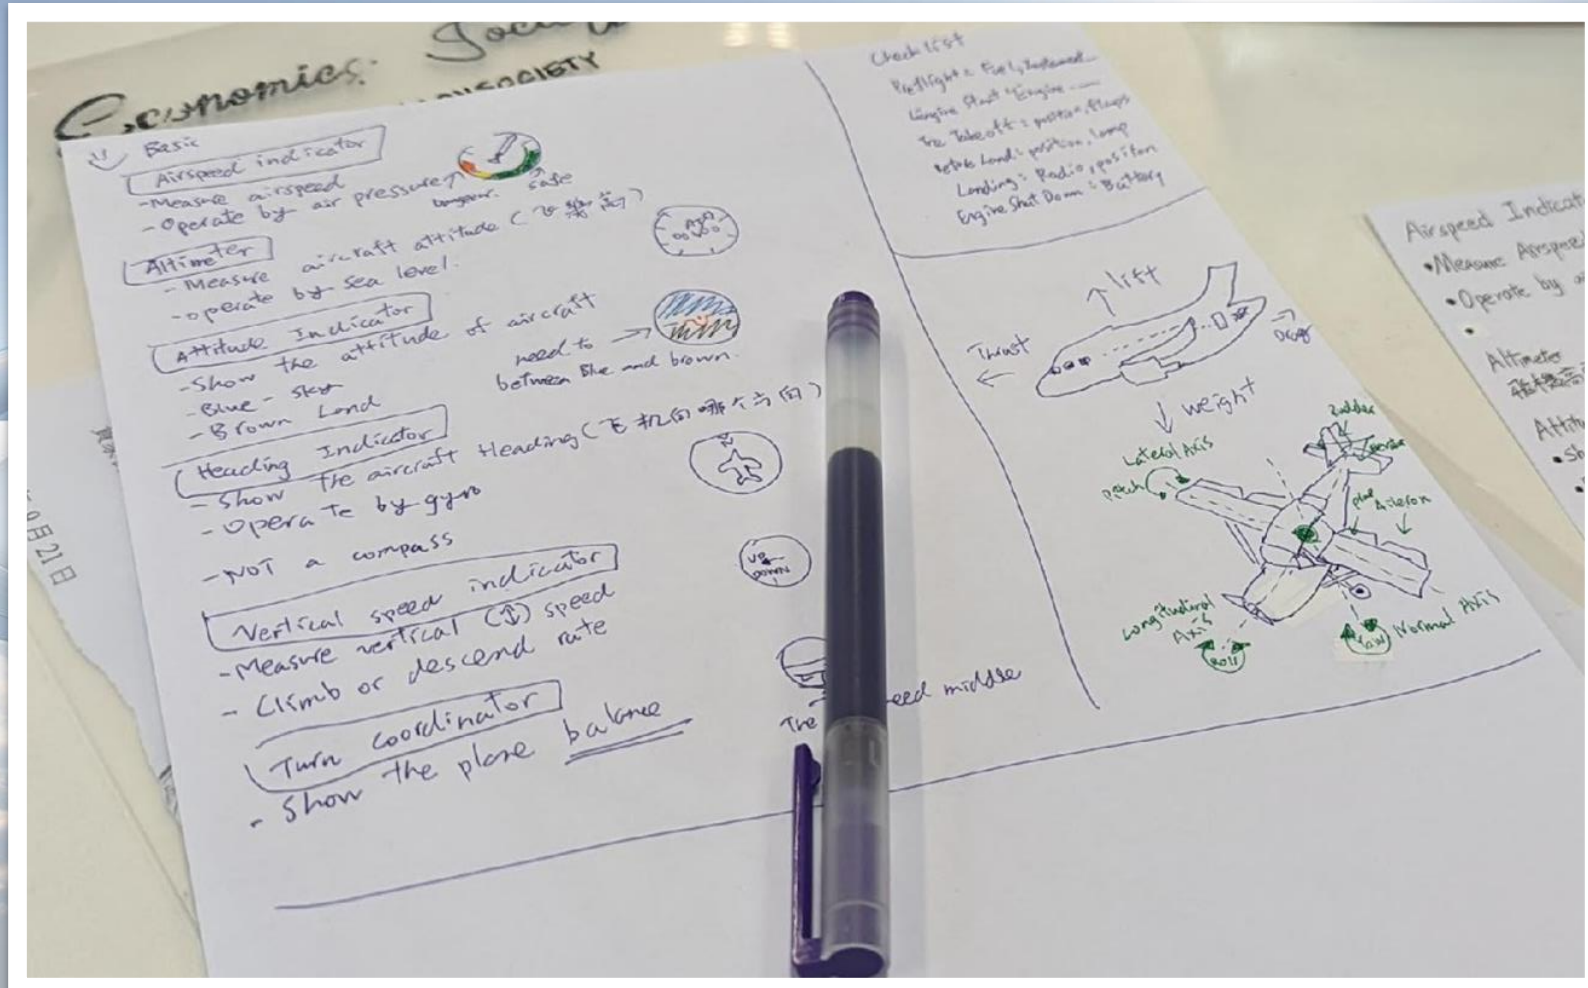 Economics Society
SOCIETY
Basic
Airspeed indicator
- Measure airspeed
- Operate by air pressure
safe
Altimeter
- Measure aircraft attitude (飞 高)
- operate by sea level.
Attitude Indicator
- Show the attitude of aircraft
- Blue - sky
- Brown Land
need to
between Blue and brown.
Heading Indicator
- Show the aircraft Heading (飞机向哪个方向)
- Opera te by gyro
- NOT a compass
N
Vertical speed indicator
- Measure vertical (↕) speed
- Climb or descend rate
UP
DOWN
Turn coordinator
- Show the plane balance
The eed middle
Check list
Preflight: Fuel,
Engine Start: Engine
Pre Takeoff: position, flaps
Before Land: position, lamp
Landing: Radio, position
Engine Shut Down: Battery
lift
Thrust
weight
Rudder
Lateral Axis
Pitch
Aileron
Longitudinal
Axis
Roll
Yaw
Normal Axis
Airspeed Indicat
• Measure Airspeed
• Operate by a
•
Altimeter
飛機高
Attitu
• Sh
9月21日